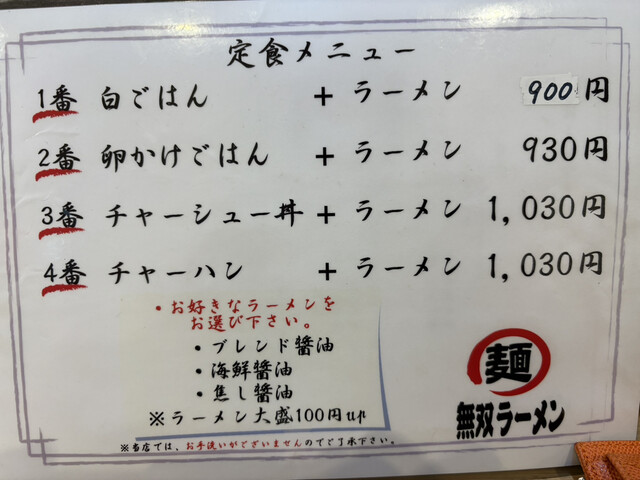 定食メニュー
1番 白ごはん + ラーメン 900円
2番 卵かけごはん + ラーメン 930円
3番 チャーシュー丼 + ラーメン 1,030円
4番 チャーハン + ラーメン 1,030円
・お好きなラーメンを
お選び下さい。
・ブレンド醤油
・海鮮醤油
・焦し醤油
※ラーメン大盛100円up
麺
無双ラーメン
※当店では、お手洗いがございませんのでご了承下さい。